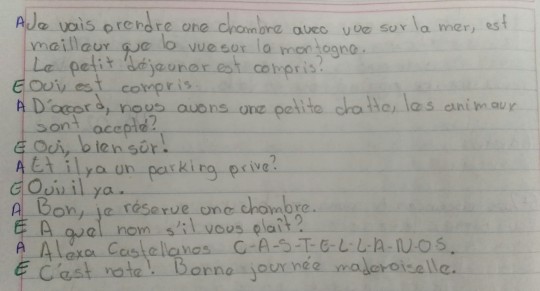 A Je vais prendre une chambre avec vue sur la mer, est
meilleur que la vue sur la montagne.
Le petit déjeuner est compris?
E Oui, est compris
A D'acord, nous avons une petite chatte, les animaux
sont accepté?
E Oui, bien sûr!
A Et il ya un parking privé?
E Oui il ya.
A Bon, je réserve une chambre.
E A quel nom s'il vous plait?
A Alexa Castellanos C-A-S-T-E-L-L-A-N-OS.
E C'est noté! Bonne journée mademoiselle.